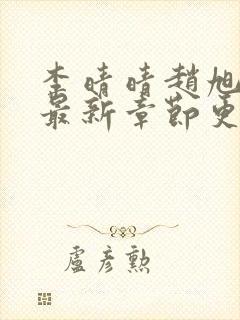 李晴晴趙旭
最新章節更
盧彥勲